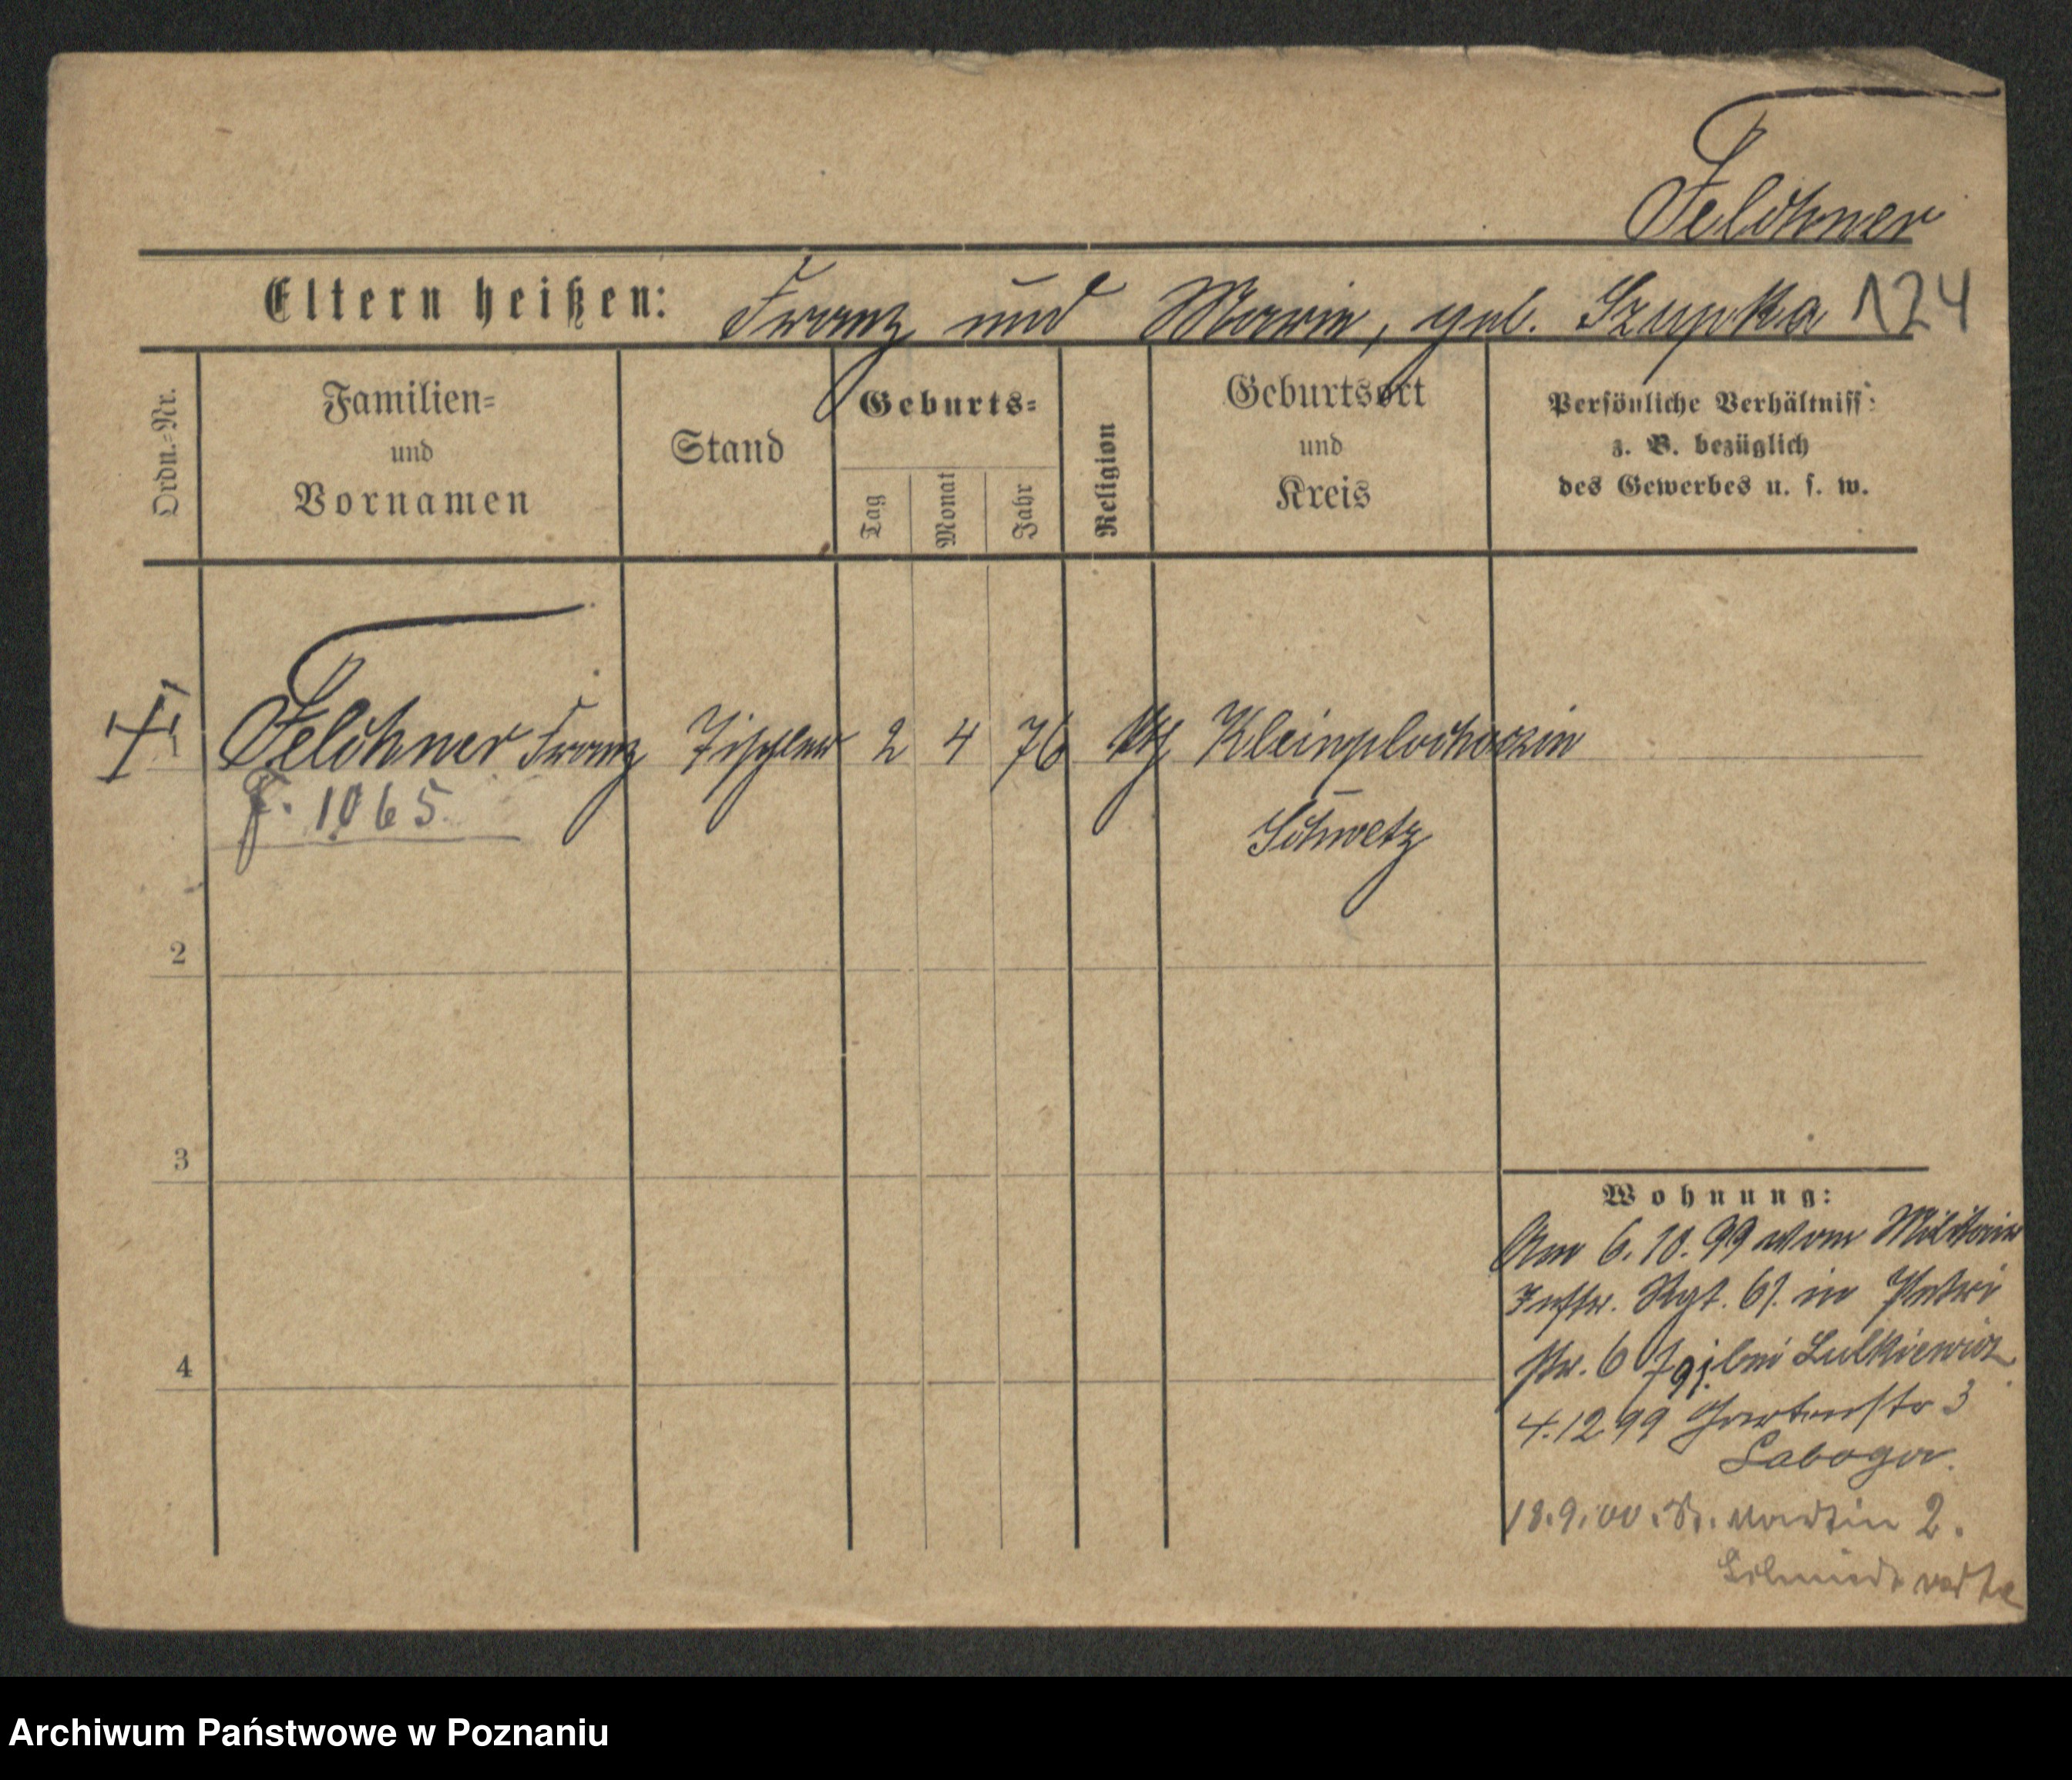 Felchner
Eltern heißen: Franz und Marie, geb. Szupka 124
Ordn.=Nr.
Familien=
und
Vornamen
Stand
Geburts=
Tag
Monat
Jahr
Religion
Geburtsort
und
Kreis
Persönliche Verhältniss
z. B. bezüglich
des Gewerbes u. s. w.
1 Felchner Franz Tischler 2 4 76 kth Kleinplochoczin
F. 1065.
Schwetz
2
3
4
Wohnung:
Am 6. 10. 99 vom Militair
Inftr. Rgt. 61. in
str. 6 bei Lulkiewicz
4.12 99 Gartenstr 3
Laboga.
18.9.00. St. Martin 2.
Schmiede
Archiwum Państwowe w Poznaniu